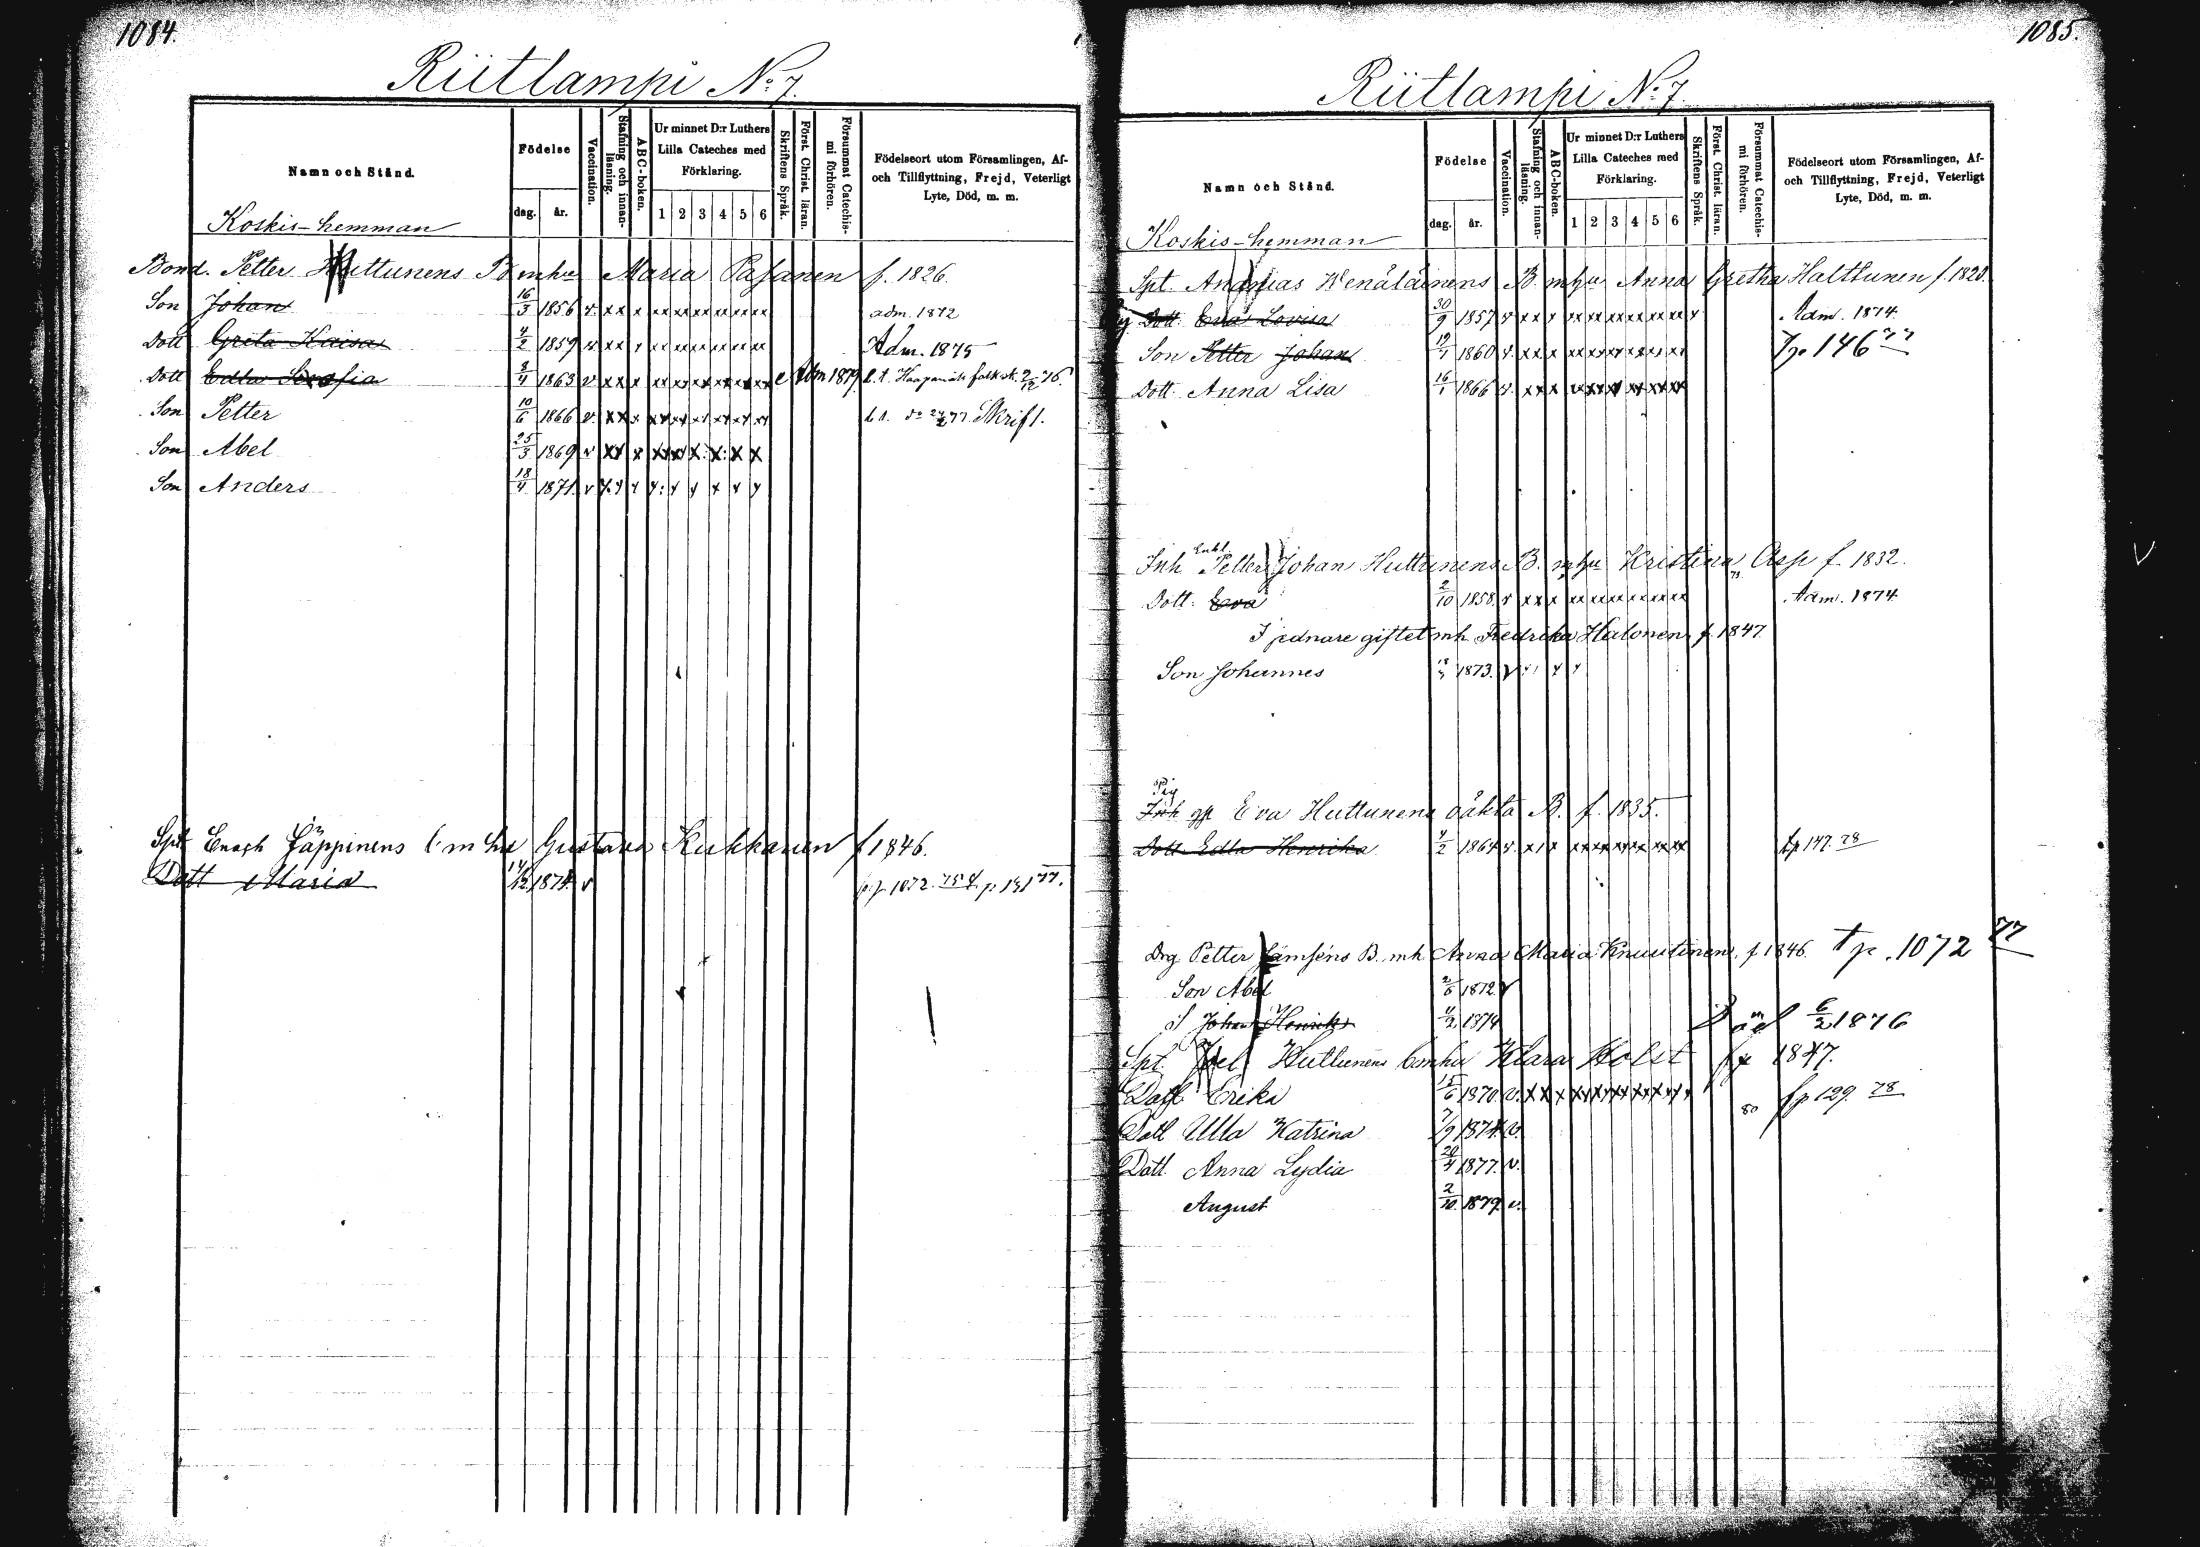 1084.
Riitlampi No 7.
Namn och Stånd.
Födelse
dag. år.
Vaccination.
Stafning och innanläsning.
ABC-boken.
Ur minnet D:r Luthers Lilla Cateches med Förklaring.
1 2 3 4 5 6
Skriftens Språk.
Först. Christ. läran.
Försummat Catechismi förhören.
Födelseort utom Församlingen, Af- och Tillflyttning, Frejd, Veterligt Lyte, Död, m. m.
Koskis-hemman
Bond. Petter Huttunens B mhu Maria Pasanen f. 1826.
Son Johan 16/3 1856 v. xx x xx xx xx xx xx xx adm. 1872
Dott Greta Kaisa 4/2 1859 v xx x xx xx xx xx xx xx Adm. 1875
Dott Edla Serafia 8/4 1863 v xx x xx xx xx xx xx xx Adm 1879
Son Petter 10/6 1866 v. xx x xx xx xx xx xx xx Skrift.
Son Abel 25/3 1869 v xx x xx xx x x x x
Son Anders 18/4 1871 v
Spt Enoch Jäppinens b m hu Gustava Kukkanen f 1846.
Dott Maria 14/12 1874 v p 1072 p 131 77.
1085.
Riitlampi No 7.
Namn och Stånd.
Födelse
dag. år.
Vaccination.
Stafning och innanläsning.
ABC-boken.
Ur minnet D:r Luthers Lilla Cateches med Förklaring.
1 2 3 4 5 6
Skriftens Språk.
Först. Christ. läran.
Försummat Catechismi förhören.
Födelseort utom Församlingen, Af- och Tillflyttning, Frejd, Veterligt Lyte, Död, m. m.
Koskis-hemman
Spt. Ananias Wenäläinens B. mhu Anna Gretha Halttunen f. 1820.
Dott. Eva Lovisa 30/9 1857 v xx x xx xx xx xx xx xx Adm. 1874
Son Petter Johan 1860 v. xx x xx xx xx xx xx xx p 146 77
Dott. Anna Lisa 16/1 1866 v. xx x xx xx xx xx xx xx
Inh Enkl. Petter Johan Huttunens B. mhu Kristina Asp f. 1832.
Dott. Eva 2/10 1858. v xx x xx xx xx xx xx xx Adm. 1874
I sednare giftet mh Fredrika Halonen f. 1847
Son Johannes 1873. v
Pig
Inh Eva Huttunens oäkta B. f. 1835.
Dott Edla Henrika 4/2 1864 v. xx x xx xx xx xx xx xx p 147. 78
Drg Petter Jämsens B. mh Anna Maria Knuutinen f. 1846. Tp. 1072 77
Son Abel 1872 v
Johan Henrik 4/2 1874 Död 6/2 1876
Spt. Joel Huttunens b mhu Klara Holst 1847.
Dott Erika 15/6 1870 v. xx x xx xx xx xx xx fp 129. 78
Dott Ulla Katrina 1874 v.
Dott. Anna Lydia 20/4 1877. v.
August 2/10 1879. v.